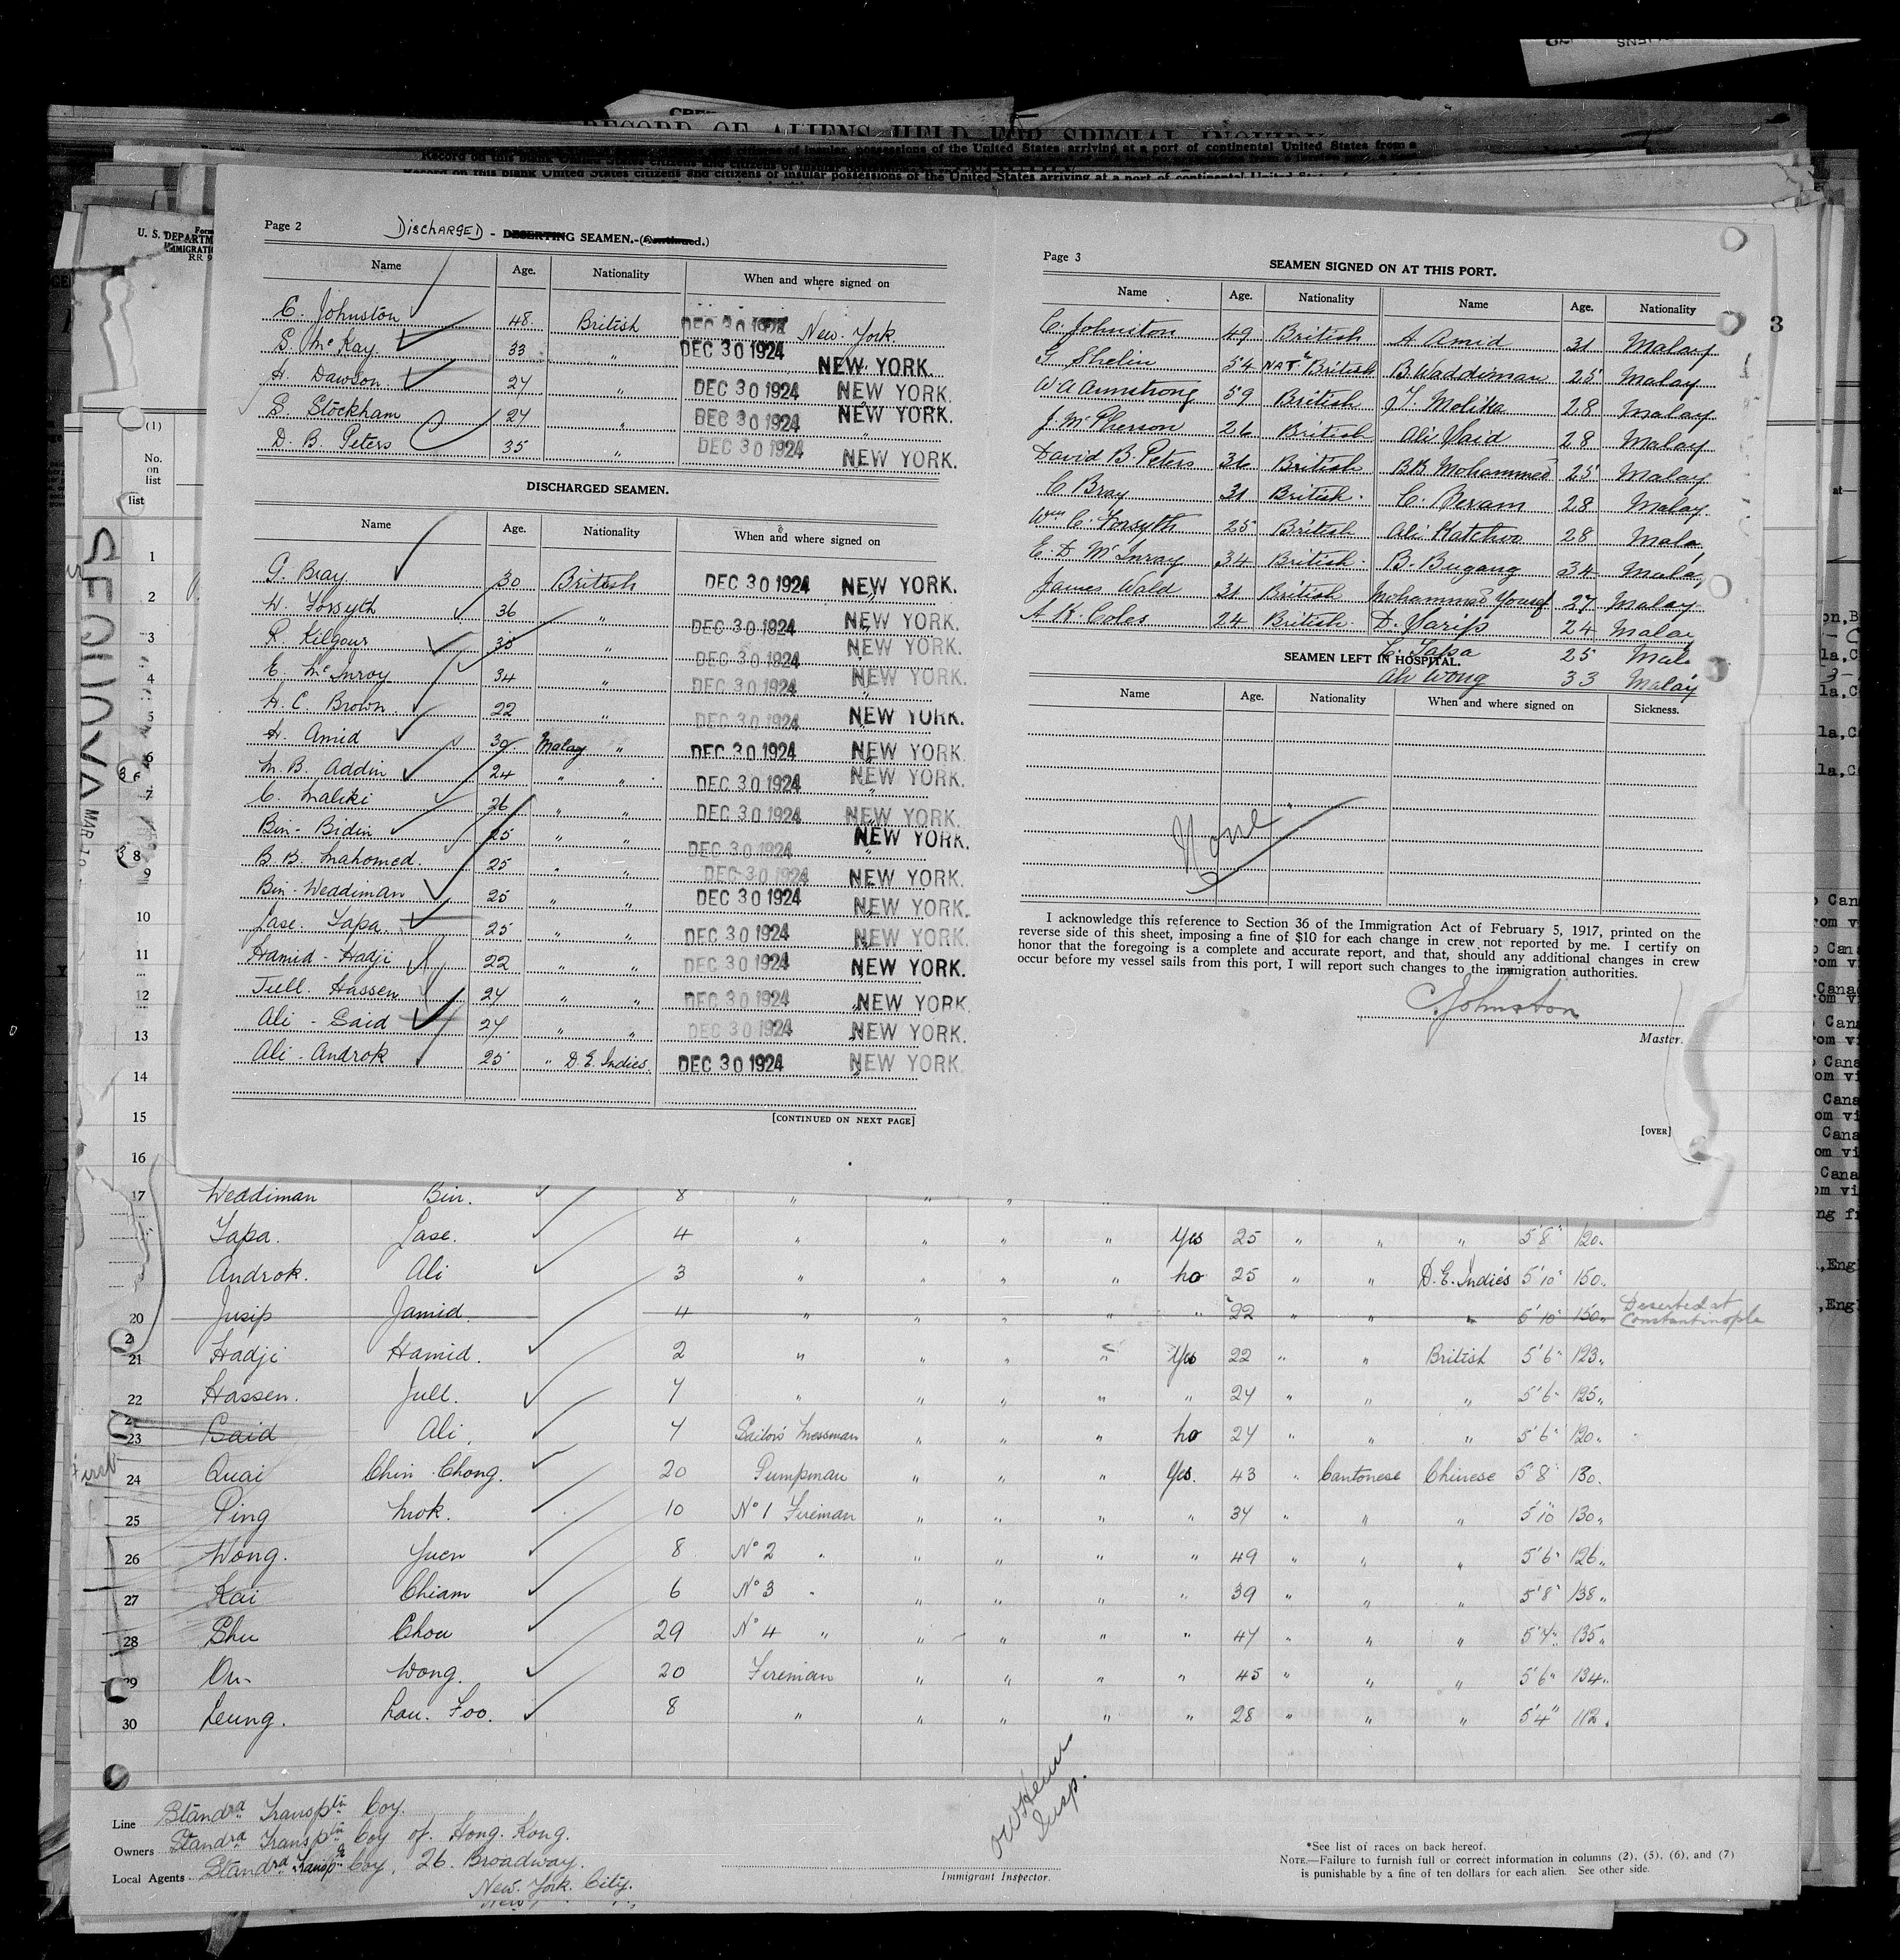 RECORD OF ALIENS HELD FOR SPECIAL INQUIRY
Record on this blank United States citizens and citizens of insular possessions of the United States arriving at a port of continental United States from a
Page 2 DISCHARGED - DESERTING SEAMEN.-(Continued.)
Name Age. Nationality When and where signed on
C. Johnston 48. British DEC 30 1924 New York.
S. McKay. 33 " DEC 30 1924 NEW YORK.
H. Dawson. 24 " DEC 30 1924 NEW YORK.
S. Stockham 24 " DEC 30 1924 NEW YORK.
D. B. Peters 35 " DEC 30 1924 NEW YORK.
DISCHARGED SEAMEN.
Name Age. Nationality When and where signed on
G. Bray. 30 British DEC 30 1924 NEW YORK.
W. Forsyth 36 " DEC 30 1924 NEW YORK.
R. Kilgour 35 " DEC 30 1924 NEW YORK.
E. McInroy 34 " DEC 30 1924 NEW YORK.
H. C. Brown. 22 " DEC 30 1924 NEW YORK.
H. Amid 30 Malay " DEC 30 1924 NEW YORK.
M. B. Addin 24 " " DEC 30 1924 NEW YORK.
C. Maliki 26 " " DEC 30 1924 NEW YORK.
Bin - Bidin 25 " " DEC 30 1924 NEW YORK.
B. B. Mahomed. 25 " " DEC 30 1924 NEW YORK.
Bin - Weddiman 25 " " DEC 30 1924 NEW YORK.
Jase. Tapa. 25 " " DEC 30 1924 NEW YORK.
Hamid - Hadji 22 " " DEC 30 1924 NEW YORK.
Jull. Hassen 24 " " DEC 30 1924 NEW YORK.
Ali - Said 24 " " DEC 30 1924 NEW YORK.
Ali - Androk 25 " D.E. Indies. DEC 30 1924 NEW YORK.
[CONTINUED ON NEXT PAGE]
Page 3 SEAMEN SIGNED ON AT THIS PORT.
Name Age. Nationality Name Age. Nationality
C. Johnston 49 British A Amid 31 Malay
54 NATd British B. Waddiman 25 Malay
W A Armstrong 59 British J. Molika 28 Malay
J. McPherson 26 British Ali Said 28 Malay
David B. Peters 36 British B.B. Mohammed 25 Malay
C Bray 31 British. C. Beram 28 Malay.
Wm C. Forsyth 25 British Ali Katchoo 28 Mala
E. D. McInroy 34 British. B. Bugang 34 Mala
James Wald 31 British Mohammed Yousef 27 Malay.
A. K. Coles 24 British. D. Sarifs 24 Malay
C. Tapa 25 Mala
Ah Wong 33 Malay
SEAMEN LEFT IN HOSPITAL.
Name Age. Nationality When and where signed on Sickness.
None
I acknowledge this reference to Section 36 of the Immigration Act of February 5, 1917, printed on the
reverse side of this sheet, imposing a fine of $10 for each change in crew not reported by me. I certify on
honor that the foregoing is a complete and accurate report, and that, should any additional changes in crew
occur before my vessel sails from this port, I will report such changes to the immigration authorities.
C. Johnston
Master.
[OVER]
3
U. S. DEPARTM
IMMIGRATI
(1)
No. on list
SEQUOYA
1
2
3
4
5
6
7
8
9
10
11
12
13
14
15
16
17 Weddiman Bin. 8 " " " "
Tapa. Jase. 4 " " " " Yes 25 " " " 5'8" 120"
Androk. Ali 3 " " " " No 25 " " D.E. Indies 5'10" 150"
20 Jusip Jamid. 4 " " " " " 22 " " " 5'10" 150" Deserted at Constantinople
21 Hadji Hamid. 2 " " " " Yes 22 " " British 5'6" 123"
22 Hassen. Jull. 4 " " " " " 24 " " " 5'6" 125"
23 Said Ali. 4 Sailors Messman " " " No 24 " " " 5'6" 120"
24 Quai Chin Chong. 20 Pumpman " " " Yes. 43 " Cantonese Chinese 5'8" 130.
25 Ping Mok. 10 No 1 Fireman " " " " 34 " " " 5'10" 130"
26 Wong. Yuen 8 No 2 " " " " " 49 " " " 5'6" 126"
27 Kai Chiam 6 No 3 " " " " " 39 " " " 5'8" 138"
28 Shu Chou 29 No 4 " " " " " 44 " " " 5'4" 135"
29 On Wong. 20 Fireman " " " " 45 " " " 5'6" 134"
30 Leung. Lau. Foo. 8 " " " " " 28 " " " 5'4" 112"
Line Standrd Transptn Coy.
Owners Standrd Transptn Coy of Hong. Kong.
Local Agents Standrd Transp Coy. 26. Broadway.
New. York. City.
Insp.
Immigrant Inspector.
*See list of races on back hereof.
NOTE.—Failure to furnish full or correct information in columns (2), (5), (6), and (7)
is punishable by a fine of ten dollars for each alien. See other side.